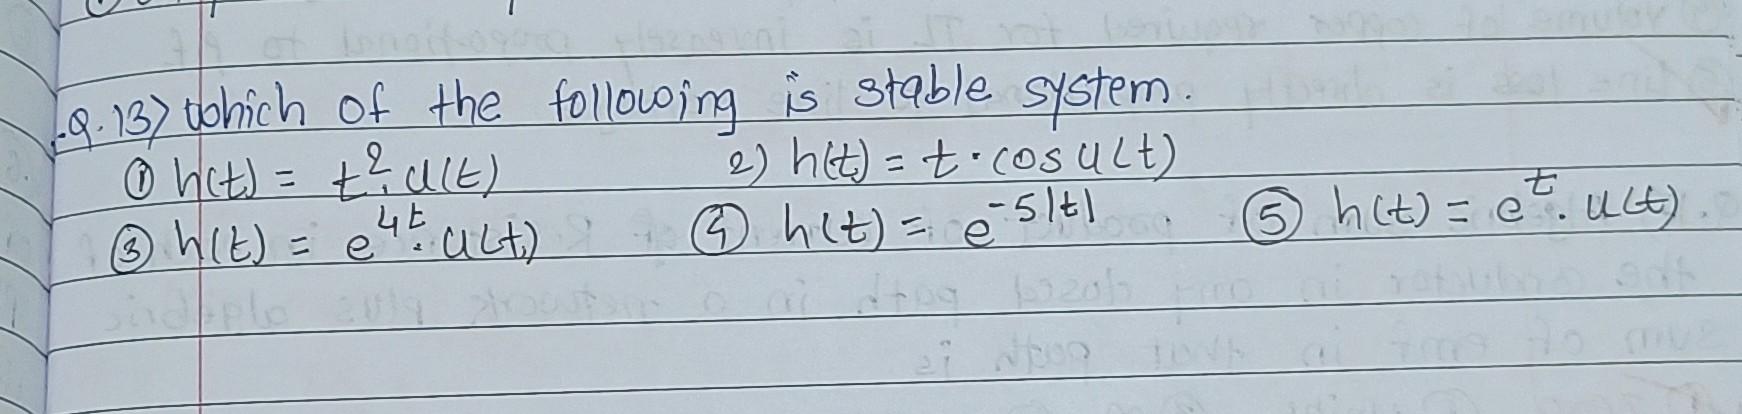 Q.13) Which of the following is stable system.
① h(t) = t². u(t) 2) h(t) = t·cos u(t)
③ h(t) = e⁴ᵗ· u(t) ④ h(t) = e⁻⁵|ᵗ| ⑤ h(t) = eᵗ. u(t)